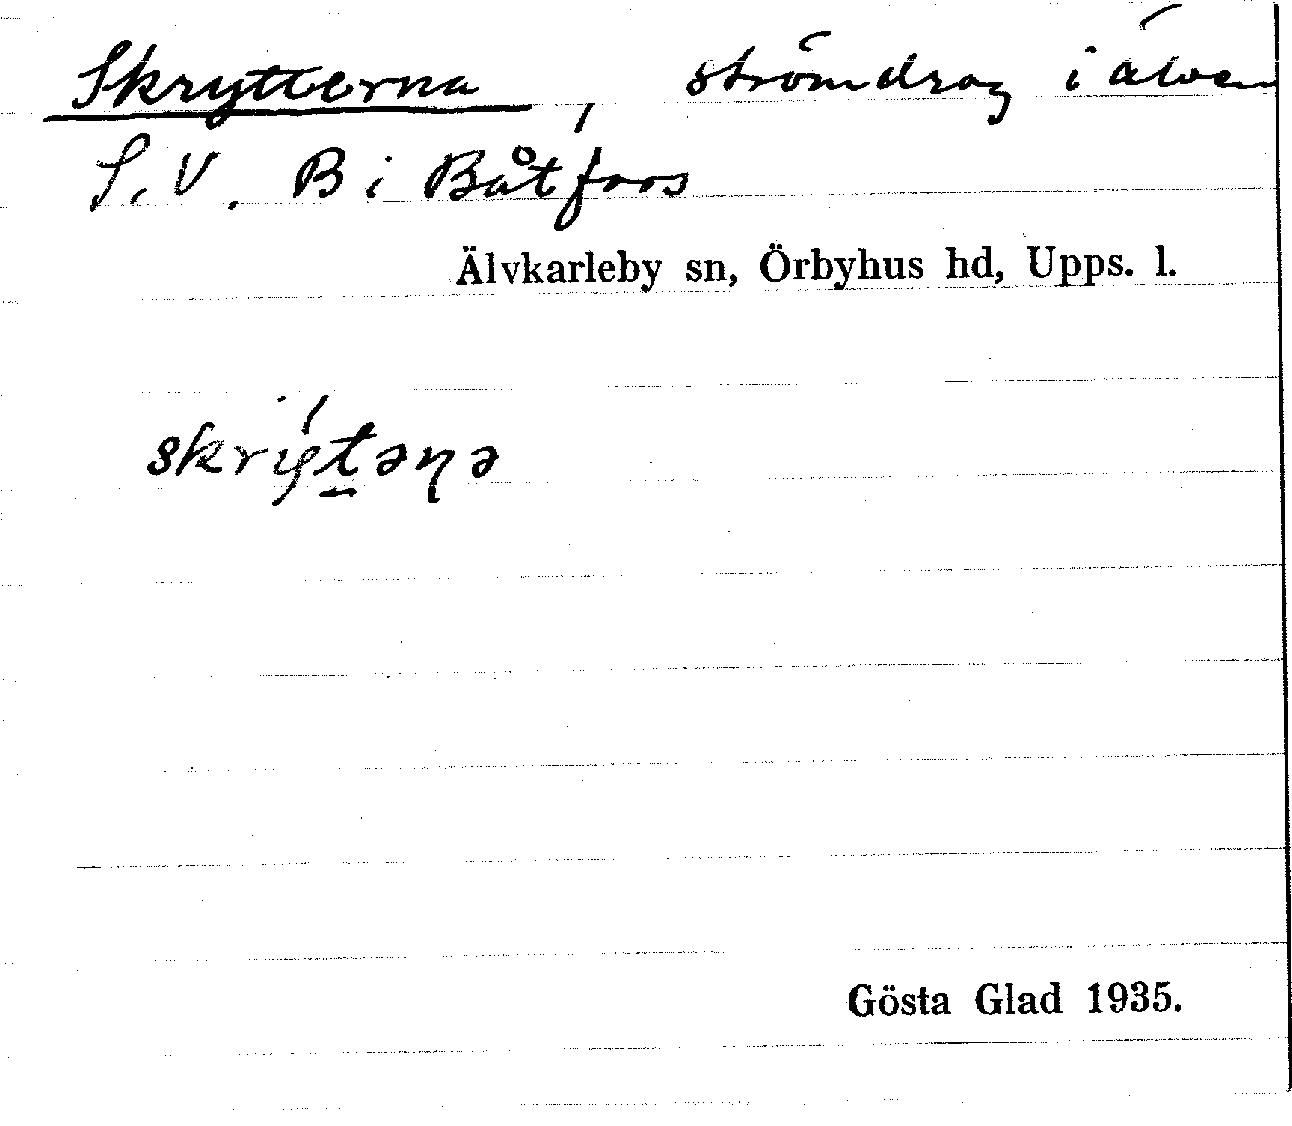 Skrytterna, strömdrag i älven
S. V. B i Båtfors
Älvkarleby sn, Örbyhus hd, Upps. l.
skrýt̲əɳə
Gösta Glad 1935.